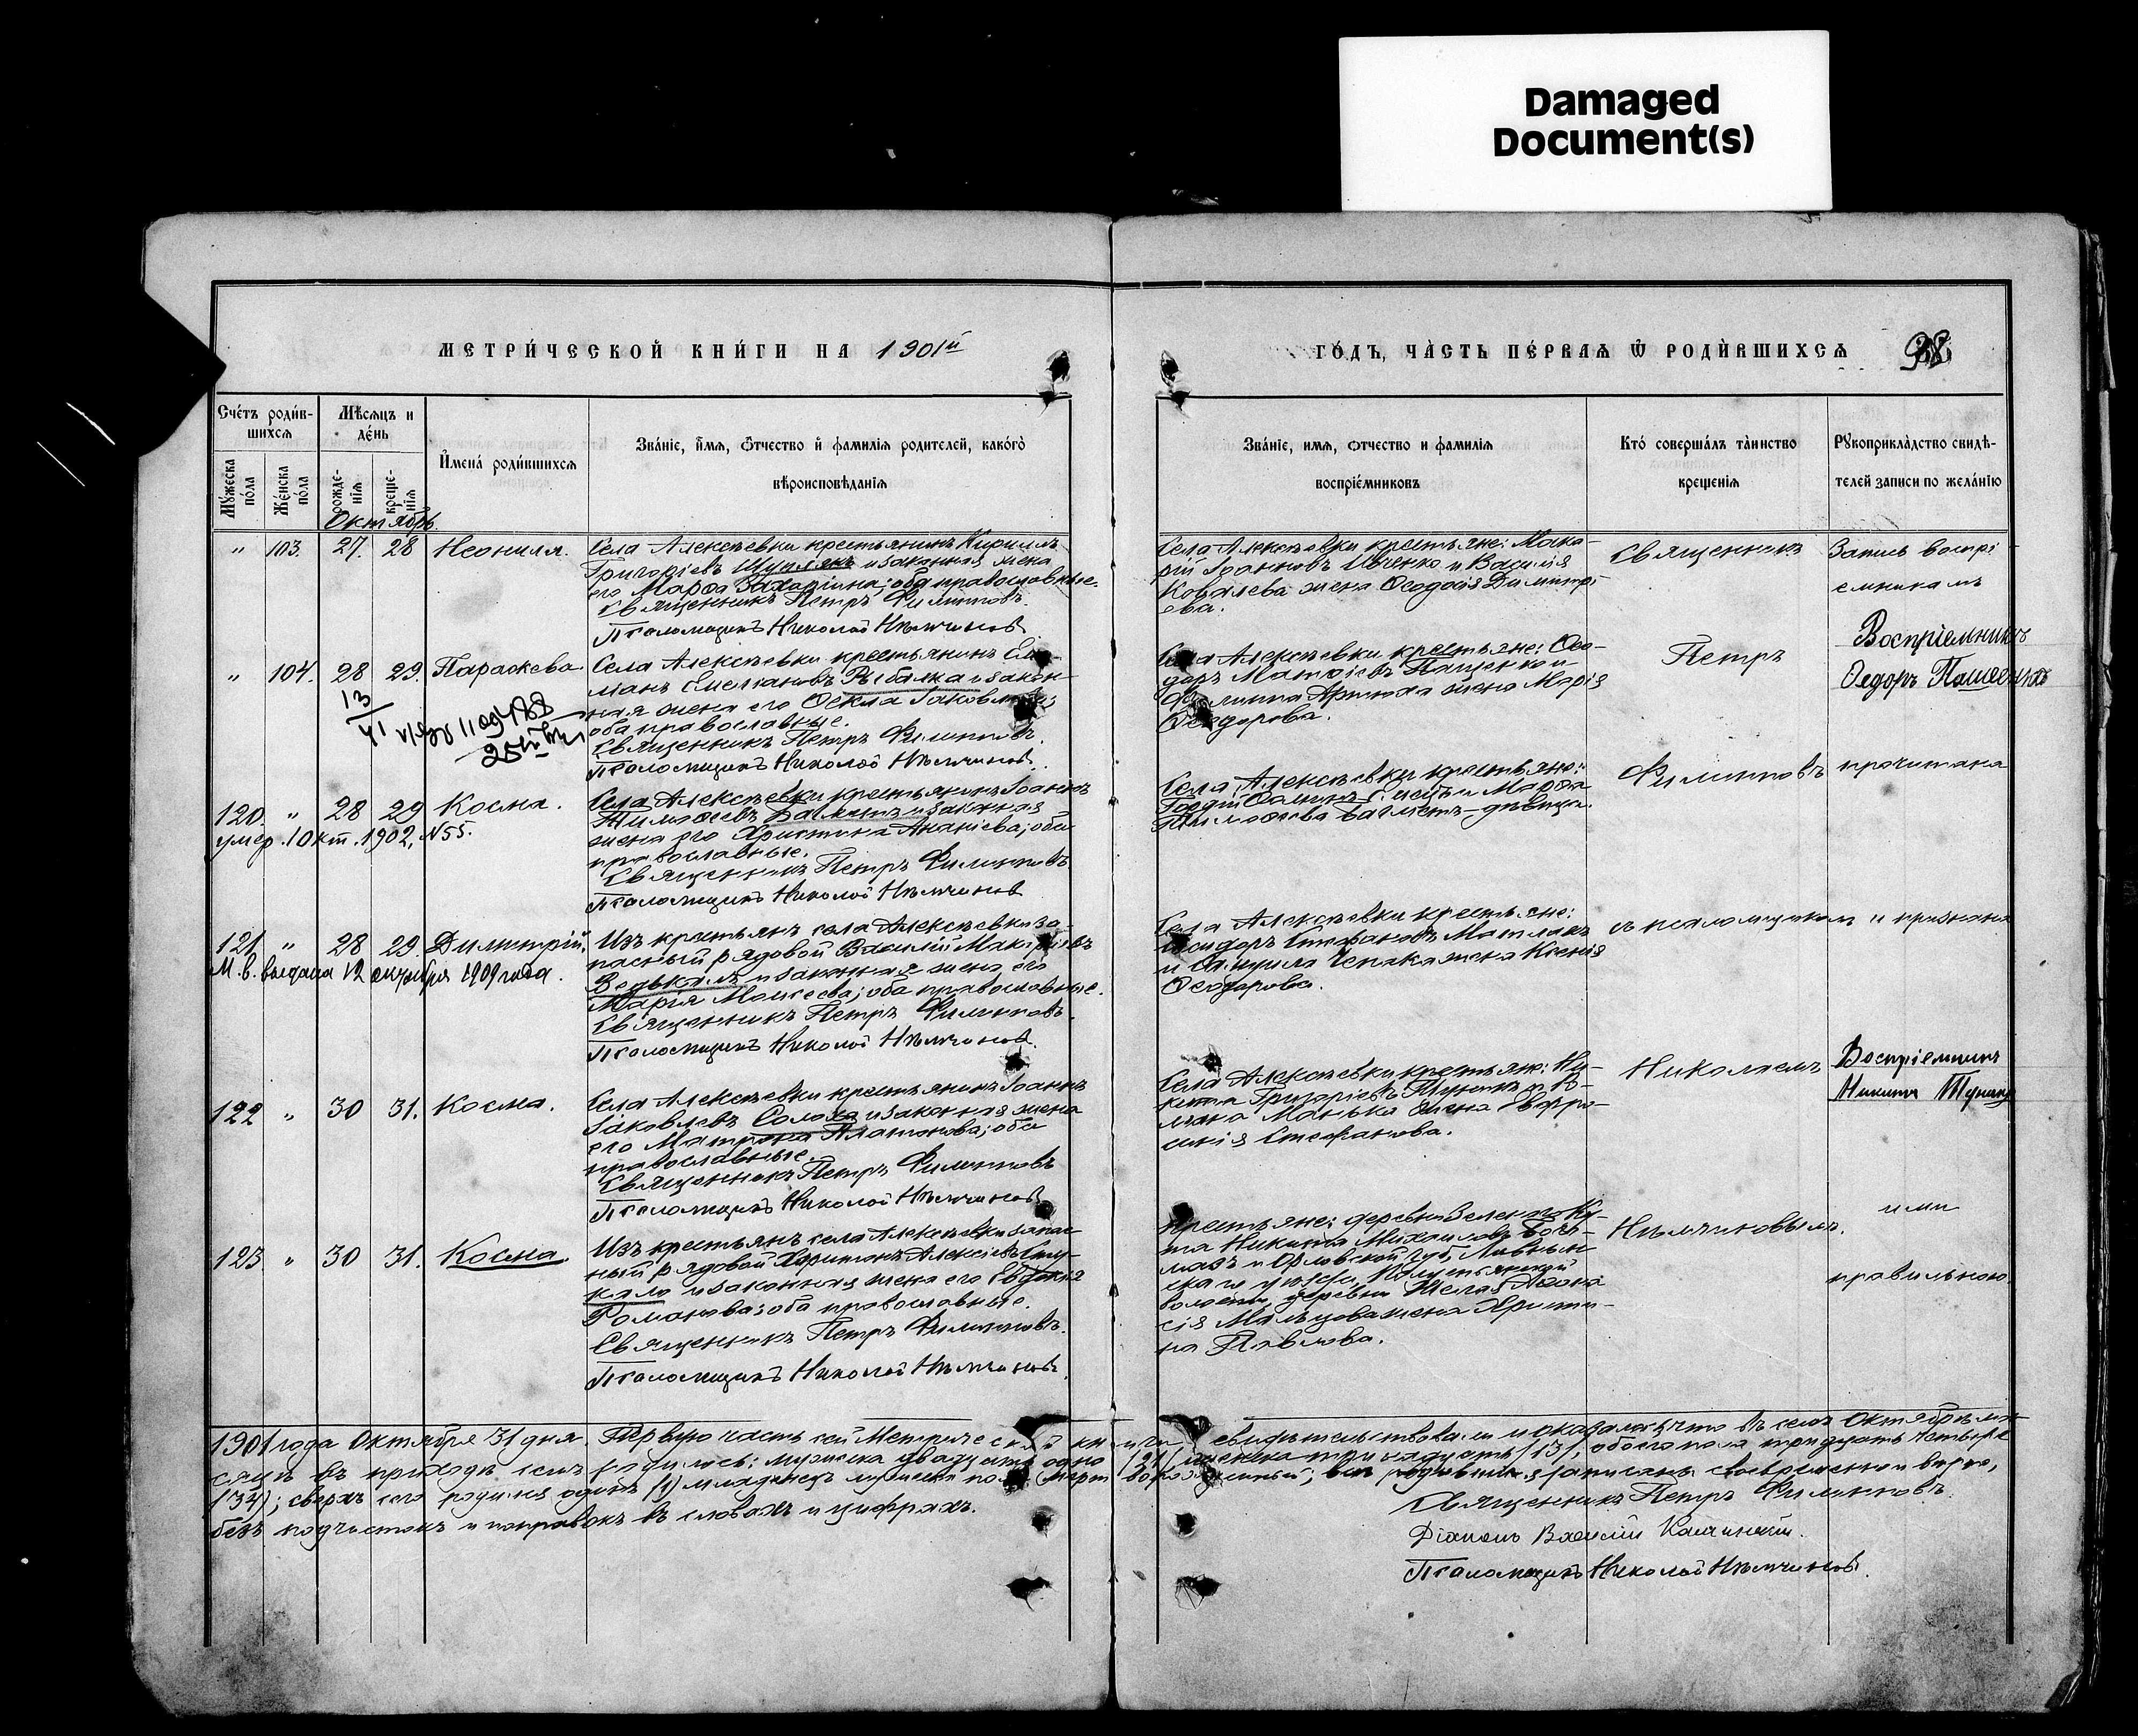 Damaged
Document(s)
МЕТРИ́ЧЕСКОЙ КНИ́ГИ НА 1901й
ГО́ДЪ, ЧА̀СТЬ ПЕ́РВАѦ Ѿ РОДИ́ВШИХСѦ 98
Сче́тъ роди́в-
шихсѧ
Мѣ́сѧцъ и
де́нь
Имена́ роди́вшихсѧ
Зва́ніе, и́мѧ, ѻ́тчество и́ фами́лїѧ родителей, како́гѡ
вѣроисповѣ́данїѧ
Му́жеска
по́ла
Же́нска
по́ла
рожде-
нїѧ
креще-
нїѧ
Октябрь
Зва́ніе, имѧ, ѻтчество и фамилїѧ
воспріе́мниковъ
Кто́ соверша́лъ та́инство
крещенїѧ
Рꙋкоприкла́дство свидѣ-
телей записи по жела́нїю
" 103. 27. 28 Неонилла.
Села Алексѣевки крестьянинъ Кириллъ
Григоріевъ Шуплякъ и законная жена
его Марѳа Захаріина; оба православные.
Священникъ Петръ Филипповъ.
Псаломщикъ Николай Нѣмчиновъ
Села Алексѣевки крестьяне: Мака-
рій Іоанновъ Ивченко и Василія
Ковалева жена Ѳеодосія Димитрі-
ева.
Священникъ
Запись воспрі-
емникамъ
" 104. 28 29. Параскева.
Села Алексѣевки крестьянинъ Еми-
ліанъ Емеліановъ Рыбалка и закон-
ная жена его Ѳекла Іаковлева;
оба православные.
Священникъ Петръ Филипповъ.
Псаломщикъ Николай Нѣмчиновъ.
Села Алексѣевки крестьяне: Ѳео-
доръ Матѳіевъ Пащенко и
Филиппа жена Марія
Ѳеодорова.
Петръ
Воспріемникъ
Ѳедоръ Пащенко
120. " 28 29 Косма.
умер. 10 кт. 1902, N55.
Села Алексѣевки крестьянинъ Іоаннъ
Тимоѳеевъ Багметъ и законная
жена его Христина Ананіева; оба
православные.
Священникъ Петръ Филипповъ
Псаломщикъ Николай Нѣмчиновъ
Села Алексѣевки крестьяне:
Гордій и Марѳа
Тимоѳеева Багметъ - дѣвица.
Филипповъ
прочитана
121. " 28 29. Димитрій.
М. в. выдана 12 октября 1909 года.
Изъ крестьянъ села Алексѣевки за-
пасный рядовой Василій Макаріевъ
и законная жена его
Марія Моисеева; оба православные.
Священникъ Петръ Филипповъ.
Псаломщикъ Николай Нѣмчиновъ.
Села Алексѣевки крестьяне:
Исидоръ Стефановъ
и жена Ксенія
Ѳеодорова.
съ псаломщикомъ
и признана
122 " 30 31. Косма.
Села Алексѣевки крестьянинъ Іоаннъ
Іаковлевъ Солоха и законная жена
его Матрона Платонова; оба
православные.
Священникъ Петръ Филипповъ
Псаломщикъ Николай Нѣмчиновъ
Села Алексѣевки крестьяне: Ни-
кита Григоріевъ и Ро-
мана Манька жена Евфро-
синія Стефанова.
Николаемъ
Воспріемникъ
Никита
123. " 30 31. Косма
Изъ крестьянъ села Алексѣевки запас-
ный рядовой Харитонъ Алексіевъ
и законная жена его Евдокія
Романова; оба православные.
Священникъ Петръ Филипповъ.
Псаломщикъ Николай Нѣмчиновъ.
крестьяне: деревни
Никита Михаиловъ
и Орловской губ. Ливен-
скаго уѣзда,
волости, деревни
жена Христи-
на Павлова.
Нѣмчиновымъ.
ими
правильною.
1901 года Октября 31 дня. Первую часть сей Метрической книги свидѣтельствовали и оказалось, что въ семъ Октябрѣ мѣ-
сяцѣ въ приходѣ семъ родилось: мужеска двадцать одно (21), женска тринадцать (13), обоего пола тридцать четыре
(34); сверхъ сего родился одинъ (1) младенецъ мужеска пола мертворожденный; всѣ родившіеся записаны своевременно и вѣрно,
безъ подчистокъ и поправокъ въ словахъ и цифрахъ.
Священникъ Петръ Филипповъ.
Діаконъ Василій
Псаломщикъ Николай Нѣмчиновъ.